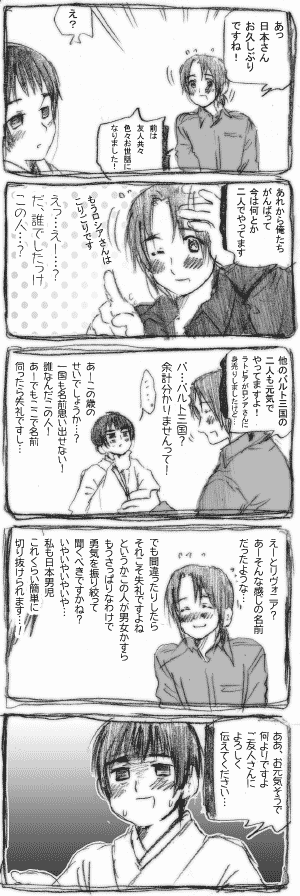 あっ
日本さん
お久しぶり
ですね！
え？
前は
友人共々
色々お世話に
なりました！
あれから俺たち
がんばって
今は何とか
二人でやってます
もうロシアさんは
こりごりです
えっ…えー…？
だ、誰でしたっけ
この人…？
他のバルト三国の
二人も元気で
やってますよ！
ラトビアがロシアさんに
身売りしましたけど…
バ…バルト三国？
余計分かりませんって！
あーこの歳の
せいでしょうか…？
一国も名前思い出せない！
誰なんだこの人！
あーでもここで名前
伺ったら失礼ですし…
えーとリヴォニア？
あーそんな感じの名前
だったような…
でも間違ったりしたら
それこそ失礼ですよね
というかこの人が男女かすら
もうさっぱりなわけで
勇気を振り絞って
聞くべきですかね？
いやいやいや…
私も日本男児
これくらい簡単に
切り抜けられます…！
ああ、お元気そうで
何よりですよ
ご友人さんに
よろしく
伝えてください…